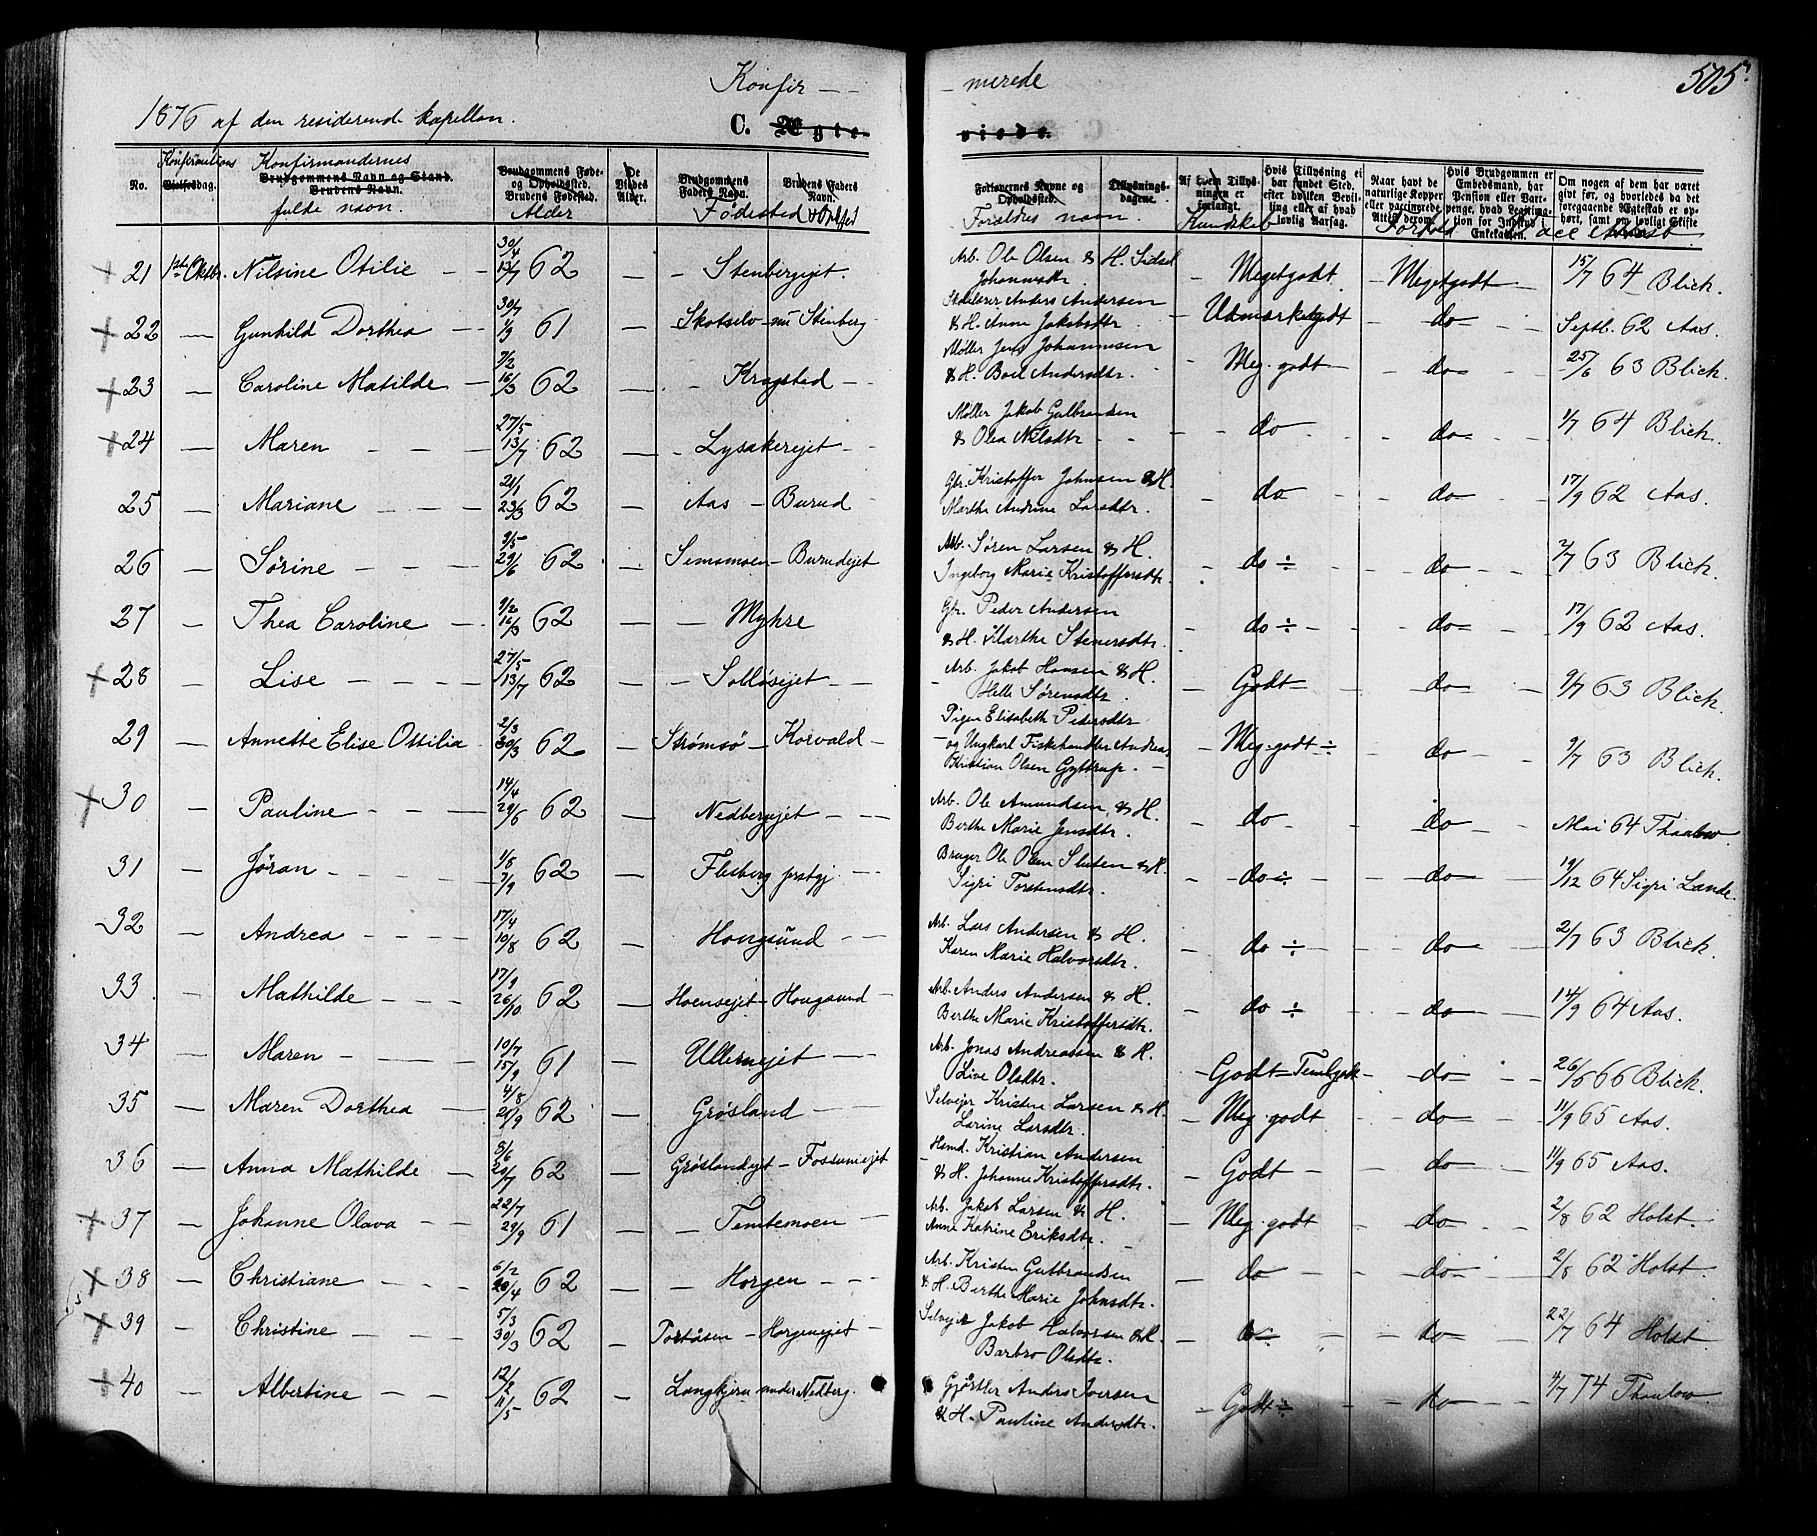 Konfir - - - merede 505.
1876 af den residerende kapellan.
C. Ægte- viede.
No. Konfirmations Vielsesdag. Konfirmandernes Brudgommens Navn og Stand. Brudens Navn. fulde navn. Brudgommens Føde- og Opholdssted. Brudens Fødested. Alder De Viedes Alder. Brudgommens Faders Navn. Brudens Faders Navn. Fødested
Forlovernes Navne og Opholdssted. Forældres navn. Tillysnings-dagene. Af hvem Tillysningen er forlangt. Kundskab Hvis Tillysning ei har fundet Sted, efter hvilken Bevilling eller af hvad lovlig Aarsag. Naar havt de naturlige Kopper eller vaccinerede Attest derom. Forhold Hvis Brudgommen er Embedsmand, har Pension eller Vartpenge, hvad Legitimation for Indskud i Enkekassen. Om nogen af dem har været givt før, og hvorledes da det foregaaende Ægteskab er ophørt, samt om lovligt Skifte
21 1ste Oktbr. Nilsine Otilie 30/4 13/7 62 Stenbergejet. Arb. Ole Olsen & H. Sidsel Johannesdtr. Megetgodt Megetgodt 15/7 64 Blich.
22 Gunhild Dorthea 30/7 1/9 61 Skotselv nu Stenberg Skolelærer Anders Andersen & H. Anne Jakobsdtr. Udmærketgodt do Septb. 62 Aas.
23 Caroline Matilde 7/2 16/3 62 Krogstad Møller Jens Johannesen & H. Boel Andersdtr. Meg. godt do 25/6 63 Blich.
24 Maren 27/5 13/7 62 Lysakerejet Møller Jakob Gulbrandsen & Olea Nilsdtr do do 1/7 64 Blich.
25 Mariane 21/1 23/3 62 Aas - Burud Gbr. Kristoffer Johnsen & H. Marthe Andrine Larsdtr. do do 17/9 62 Aas.
26 Sørine 9/5 29/6 62 Semsmoen - Burudejet Arb. Søren Larsen & H. Ingeborg Marie Kristoffersdtr. do ÷ do 2/7 63 Blich.
27 Thea Caroline 9/2 16/3 62 Myhre Gbr. Peder Andersen & H. Marthe Stenersdtr. do ÷ do 17/9 62 Aas.
28 Lise 27/5 13/7 62 Solløsejet Arb. Jakob Hansen & H. Helle Sørensdtr. Godt do 9/7 63 Blich.
29 Annette Elise Ottilia 2/3 30/3 62 Strømsø - Korvald Pigen Elisabeth Pedersdtr og Ungkarl Fiskehandler Andreas Kristian Olsen Gyttrup. Meg. godt ÷ do 9/7 63 Blich.
30 Pauline 14/4 29/6 62 Nedbergejet Arb. Ole Amundsen & H. Berthe Marie Jensdtr. do do Mai 64 Thaulow
31 Jøran 1/8 7/9 62 Flesberg prstgj. Bruger Ole Olsen Sluten & H. Sigri Torstensdtr. do ÷ do 19/12 64 Sigri Lande.
32 Andrea 17/4 10/8 62 Hougsund Arb. Lars Andersen & H. Karen Marie Halvorsdtr. do ÷ do 2/7 63 Blich.
33 Mathilde 17/9 26/10 62 Hoensejet - Hougsund Arb. Anders Andersen & H. Berthe Marie Kristoffersdtr. do ÷ do 14/9 64 Aas.
34 Maren 10/7 15/9 61 Ullernejet Arb. Jonas Andreassen & H. Live Olsdtr. Godt - Temlgodt do 26/6 66 Blich.
35 Maren Dorthea 4/8 21/9 62 Grøsland Selvejer Kristen Larsen & H. Larine Larsdtr. Meg. godt do 11/9 65 Aas.
36 Anna Mathilde 8/6 20/7 62 Grøslandejet - Fossumejet Hsmd. Kristian Andersen & H. Johanne Kristoffersdtr. Godt do 11/9 65 Aas.
37 Johanne Olava 22/7 29/9 61 Temtemoen Arb. Jakob Larsen & H. Anne Katrine Eriksdtr. Meg. godt do 2/8 62 Holst.
38 Christiane 6/2 20/4 62 Horgen Arb. Kristen Gulbrandsen & H. Berthe Marie Johnsdtr. do do 2/8 62 Holst.
39 Christine 5/3 30/3 62 Portåsen - Horgenejet Selvejer Jakob Halvorsen & H. Barbro Olsdtr. do do 22/7 64 Holst.
40 Albertine 12/2 11/5 62 Langkjern under Nedberg. Gjørtler Anders Iversen & H. Pauline Andersdtr. Godt ÷ do 4/7 74 Thaulow